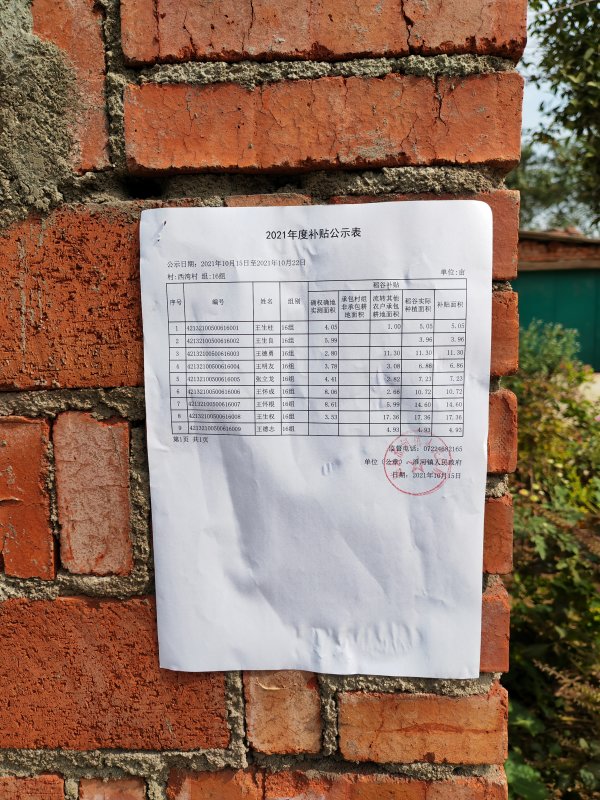 2021年度补贴公示表
公示日期：2021年10月15日至2021年10月22日
村：西湾村 组:16组 单位:亩
序号 编号 姓名 组别 稻谷补贴
确权确地实测面积 承包村组非承包耕地面积 流转其他农户承包耕地面积 稻谷实际种植面积 补贴面积
1 42132100500616001 王生桂 16组 4.05 1.00 5.05 5.05
2 42132100500616002 王生良 16组 5.99 3.96 3.96
3 42132100500616003 王德勇 16组 2.80 11.30 11.30 11.30
4 42132100500616004 王明友 16组 3.78 3.08 6.86 6.86
5 42132100500616005 张立龙 16组 4.41 2.82 7.23 7.23
6 42132100500616006 王怀成 16组 8.06 2.66 10.72 10.72
7 42132100500616007 王怀根 16组 8.61 5.99 14.60 14.60
8 42132100500616008 王生权 16组 3.53 17.36 17.36 17.36
9 42132100500616009 王德志 16组 4.93 4.93 4.93
第1页 共1页
监督电话：07224682165
单位（公章）：淮河镇人民政府
日期：2021年10月15日